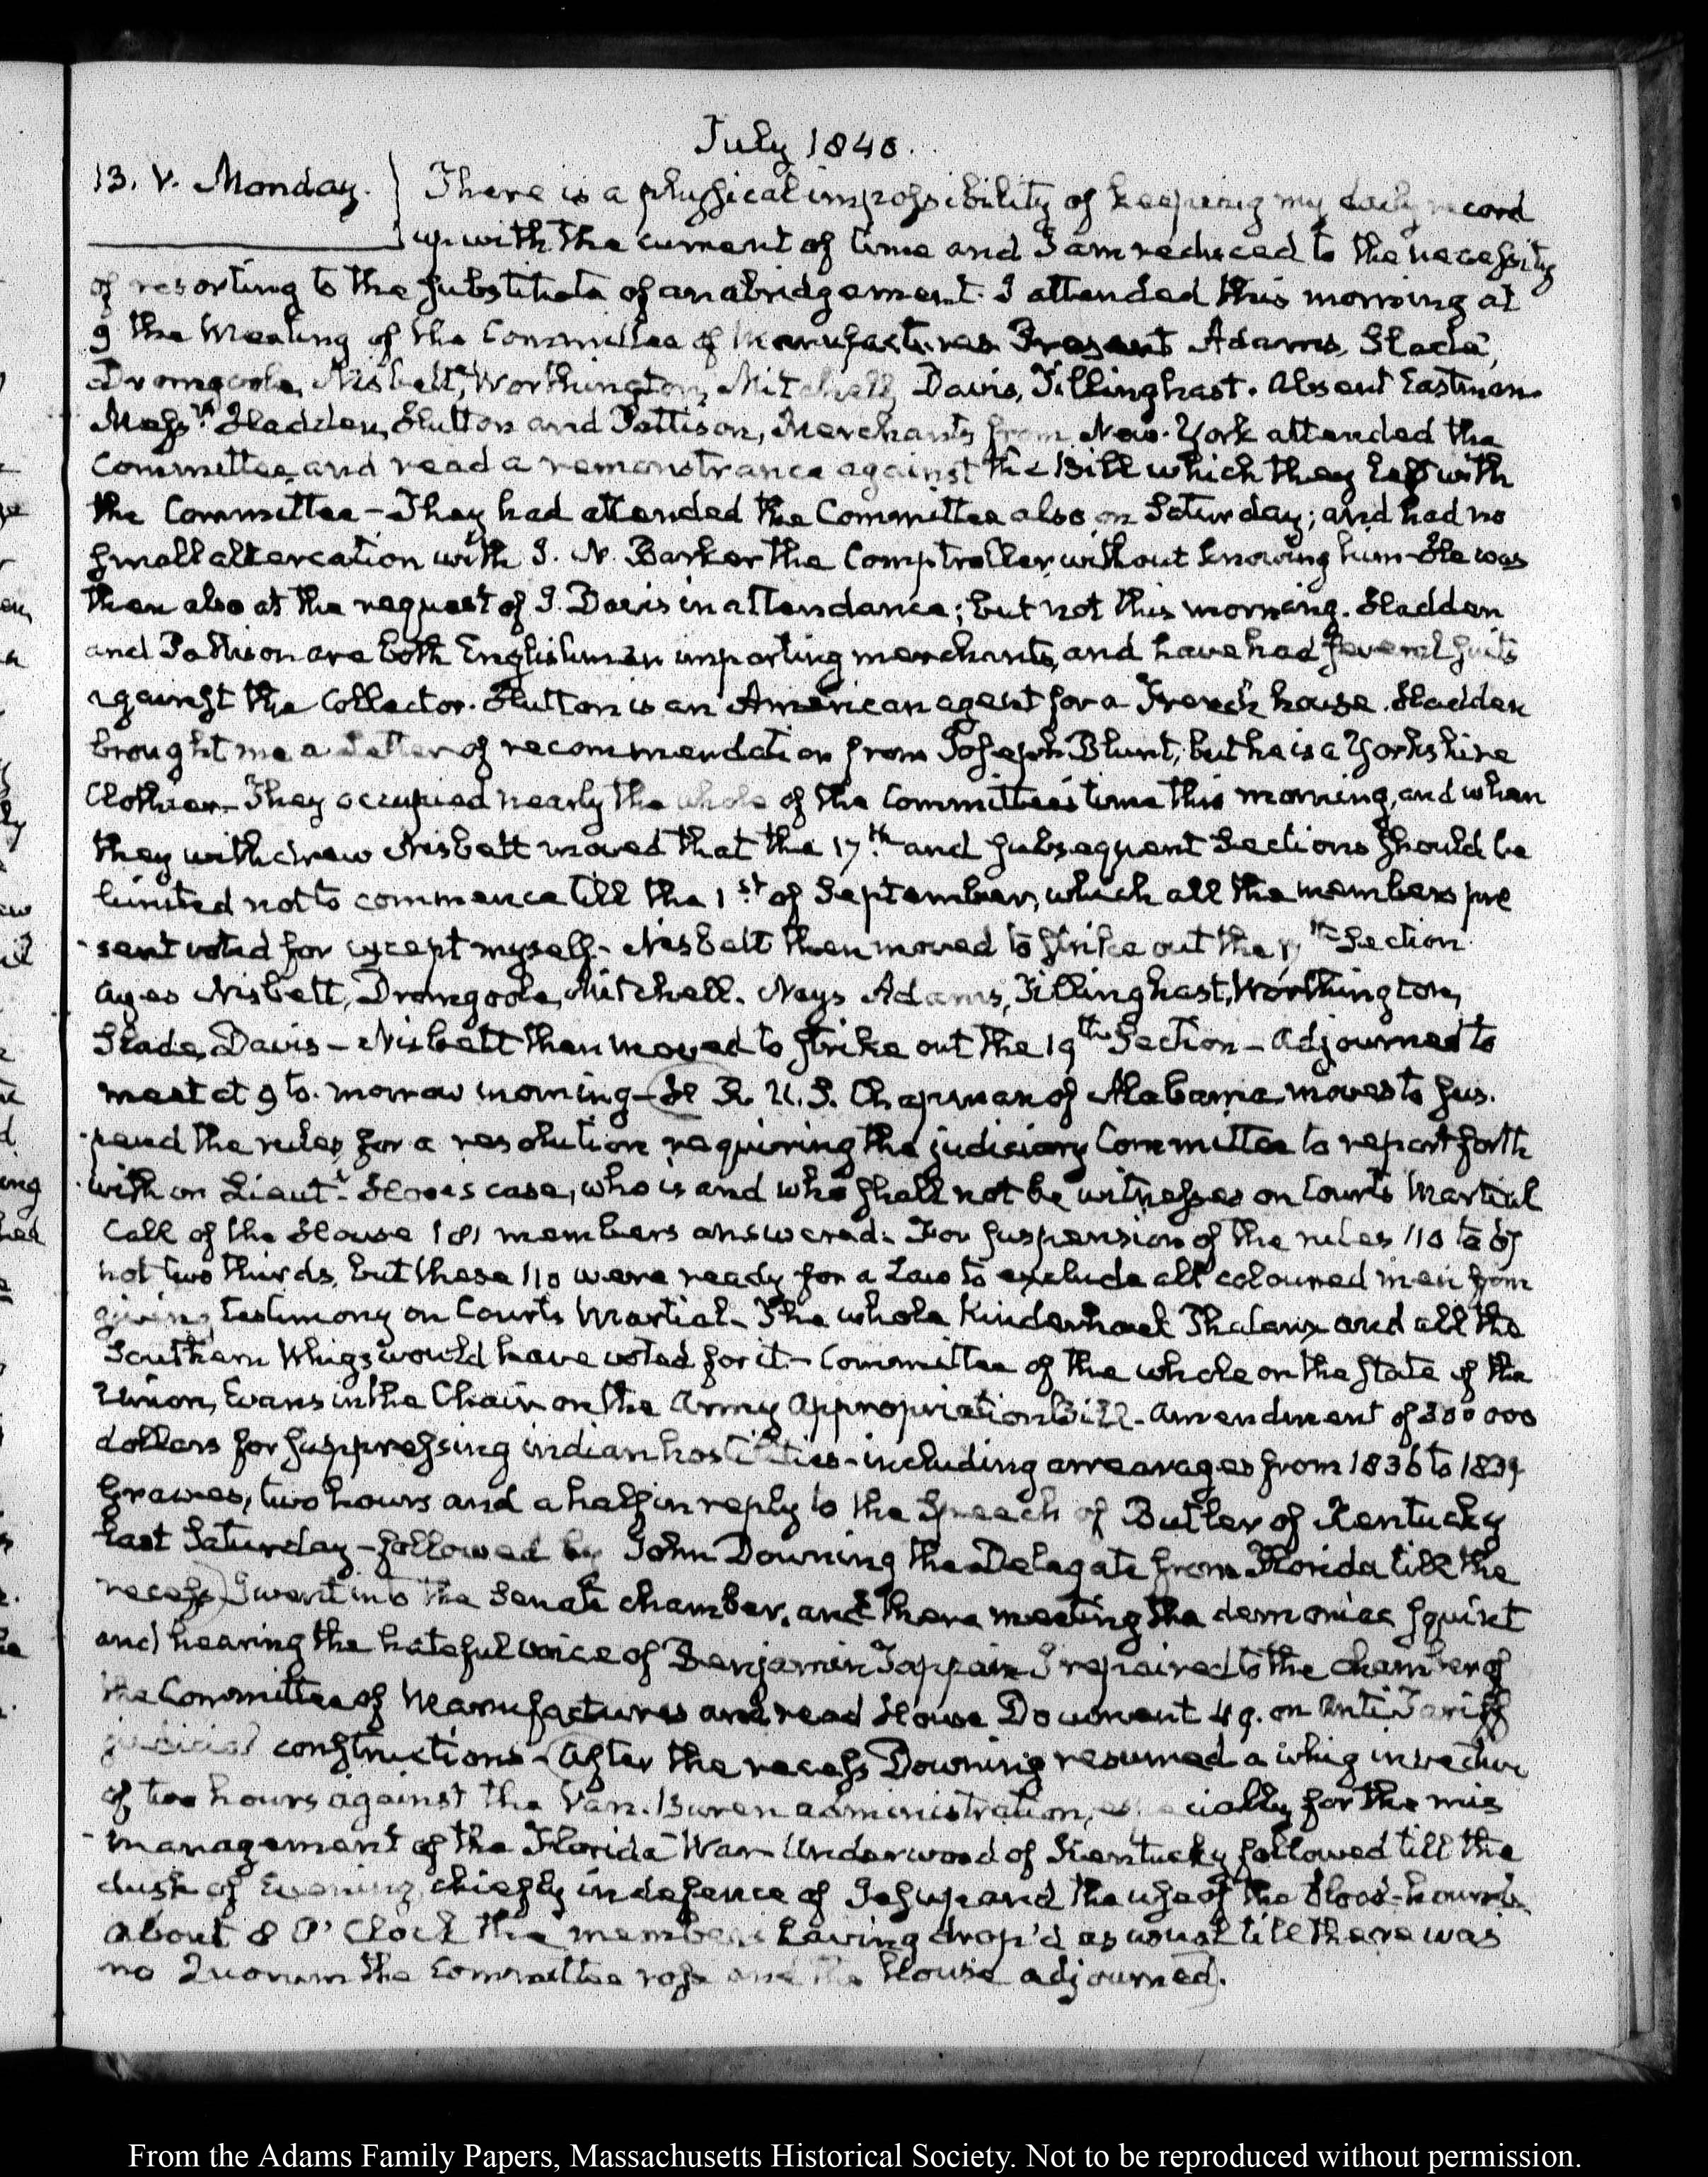 July 1840.
13. V. Monday. There is a physical impossibility of keeping my daily record
up with the current of time and I am reduced to the necessity
of resorting to the substitute of an abridgement. I attended this morning at
9 the Meeting of the Committee of Manufactures Present Adams, Slade,
Dromgoole, Nisbett, Worthington, Mitchell, Davis, Tillinghast. Absent Eastman.
Messrs. Hadden, Hutton and Pattison, Merchants from New-York attended the
Committee, and read a remonstrance against the Bill which they left with
the Committee - They had attended the Committee also on Saturday; and had no
small altercation with J. N. Barker the Comptroller, without knowing him - He was
then also at the request of J. Davis in attendance; but not this morning. Hadden
and Pattison are both Englishmen importing merchants, and have had several suits
against the Collector. Hutton is an American agent for a French house. Hadden
brought me a Letter of recommendation from Joseph Blunt; but he is a Yorkshire
Clothier - They occupied nearly the whole of the Committee's time this morning, and when
they withdrew Nisbett moved that the 17.th and subsequent Sections should be
limited not to commence till the 1.st of September, which all the members pre
-sent voted for except myself - Nisbett then moved to strike out the 17th Section
Ayes Nisbett, Dromgoole, Mitchell. Nays Adams, Tillinghast, Worthington,
Slade, Davis - Nisbett then moved to strike out the 19th Section - Adjourned to
meet at 9 to-morrow morning - H. R. U. S. Chapman of Alabama moves to sus-
-pend the rules, for a resolution requiring the judiciary Committee to report forth
-with on Lieut.t Hooe's case, who is and who shall not be witnesses on Courts Martial
Call of the House 181 members answered. For suspension of the rules 110 to 67
not two thirds, but these 110 were ready for a Law to exclude all coloured men from
giving testimony on Courts Martial - The whole Kinderhook Phalanx and all the
Southern Whigs would have voted for it - Committee of the whole on the state of the
Union, Evans in the Chair on the Army Appropriation Bill - Amendment of 300 000
dollars for suppressing indian hostilities - including arrearages from 1836 to 1839
Graves, two hours and a half in reply to the Speech of Butler of Kentucky
last Saturday - followed by John Downing the Delegate from Florida till the
recess) I went into the Senate chamber, and there meeting the demoniac squint
and hearing the hateful voice of Benjamin Tappan I repaired to the chamber of
the Committee of Manufactures and read House Document 49. on Anti Tariff
judicial constructions - (After the recess Downing resumed a whig invective
of two hours against the Van-Buren administration, especially for the mis
-management of the Florida War - Underwood of Kentucky followed till the
dusk of Evening, chiefly in defence of Jesup and the use of the blood-hounds
about 8 O'Clock the members having drop'd as usual till there was
no Quorum the Committee rose and the House adjourned).
From the Adams Family Papers, Massachusetts Historical Society. Not to be reproduced without permission.